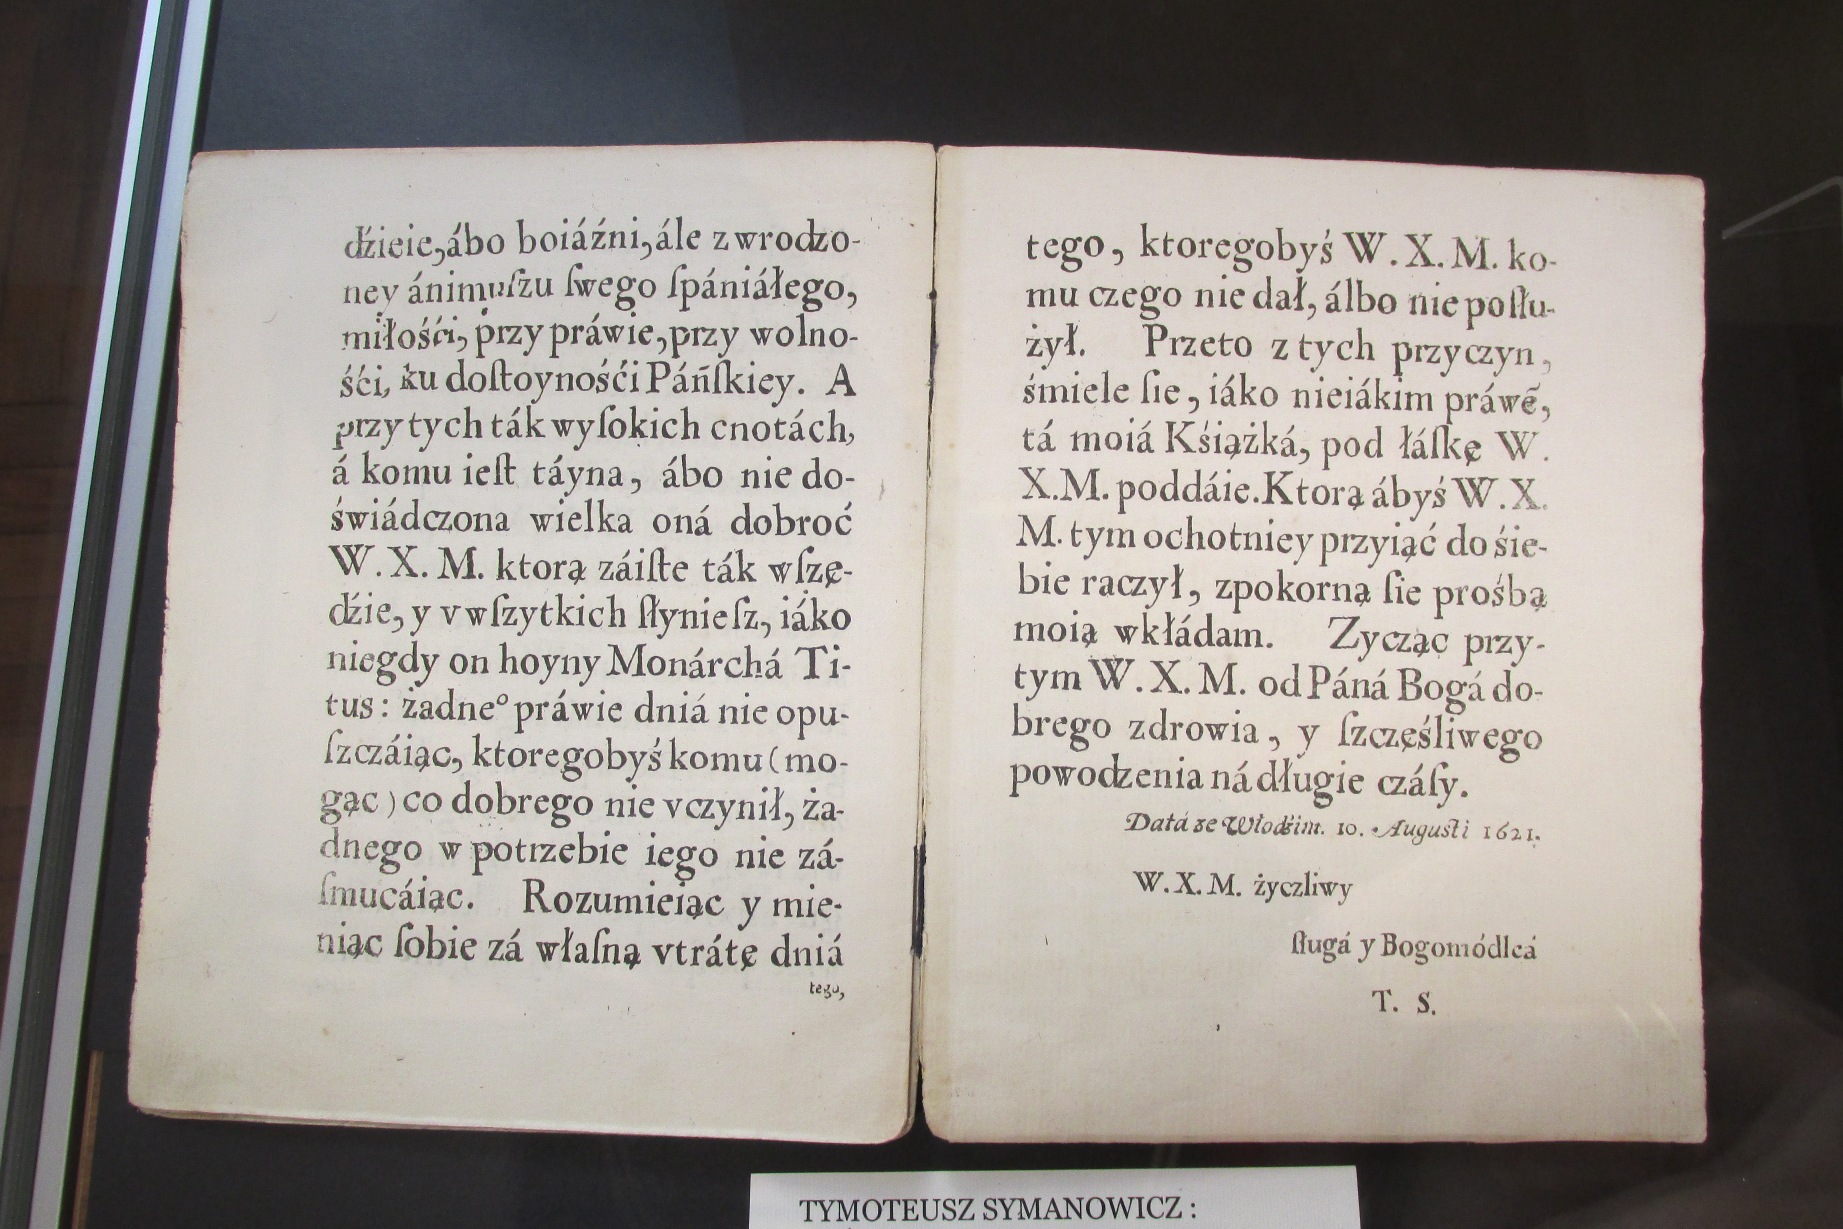 dźieie, ábo boiáźni, ále z wrodzo-
ney ánimuſzu ſwego ſpániáłego,
miłośći, przy práwie, przy wolno-
śći, ku doſtoynośći Páńſkiey. A
przy tych ták wyſokich cnotách,
á komu ieſt táyna, ábo nie do-
świádczona wielka oná dobroć
W. X. M. ktorą záiſte ták wſzę-
dźie, y v wſzytkich ſłynieſz, iáko
niegdy on hoyny Monárchá Ti-
tus: żadneº práwie dniá nie opu-
ſzczáiąc, ktoregobyś komu (mo-
gąc) co dobrego nie vczynił, ża-
dnego w potrzebie iego nie zá-
ſmucáiąc. Rozumieiąc y mie-
niąc ſobie zá właſną vtrátę dniá
tego,
tego, ktoregobyś W. X. M. ko-
mu czego nie dał, álbo nie poſłu-
żył. Przeto z tych przyczyn,
śmiele ſie, iáko nieiákim práwẽ,
tá moiá Kśiążká, pod łáſkę W.
X. M. poddáie. Ktorą ábyś W. X.
M. tym ochotniey przyiąć do śie-
bie raczył, z pokorną ſie prośbą
moią wkłádam. Zycząc przy-
tym W. X. M. od Páná Bogá do-
brego zdrowia, y ſzczęśliwego
powodzenia ná długie czáſy.
Datá ze Włodźim. 10. Auguſti 1621.
W. X. M. życzliwy
ſługá y Bogomódlcá
T. S.
TYMOTEUSZ SYMANOWICZ :